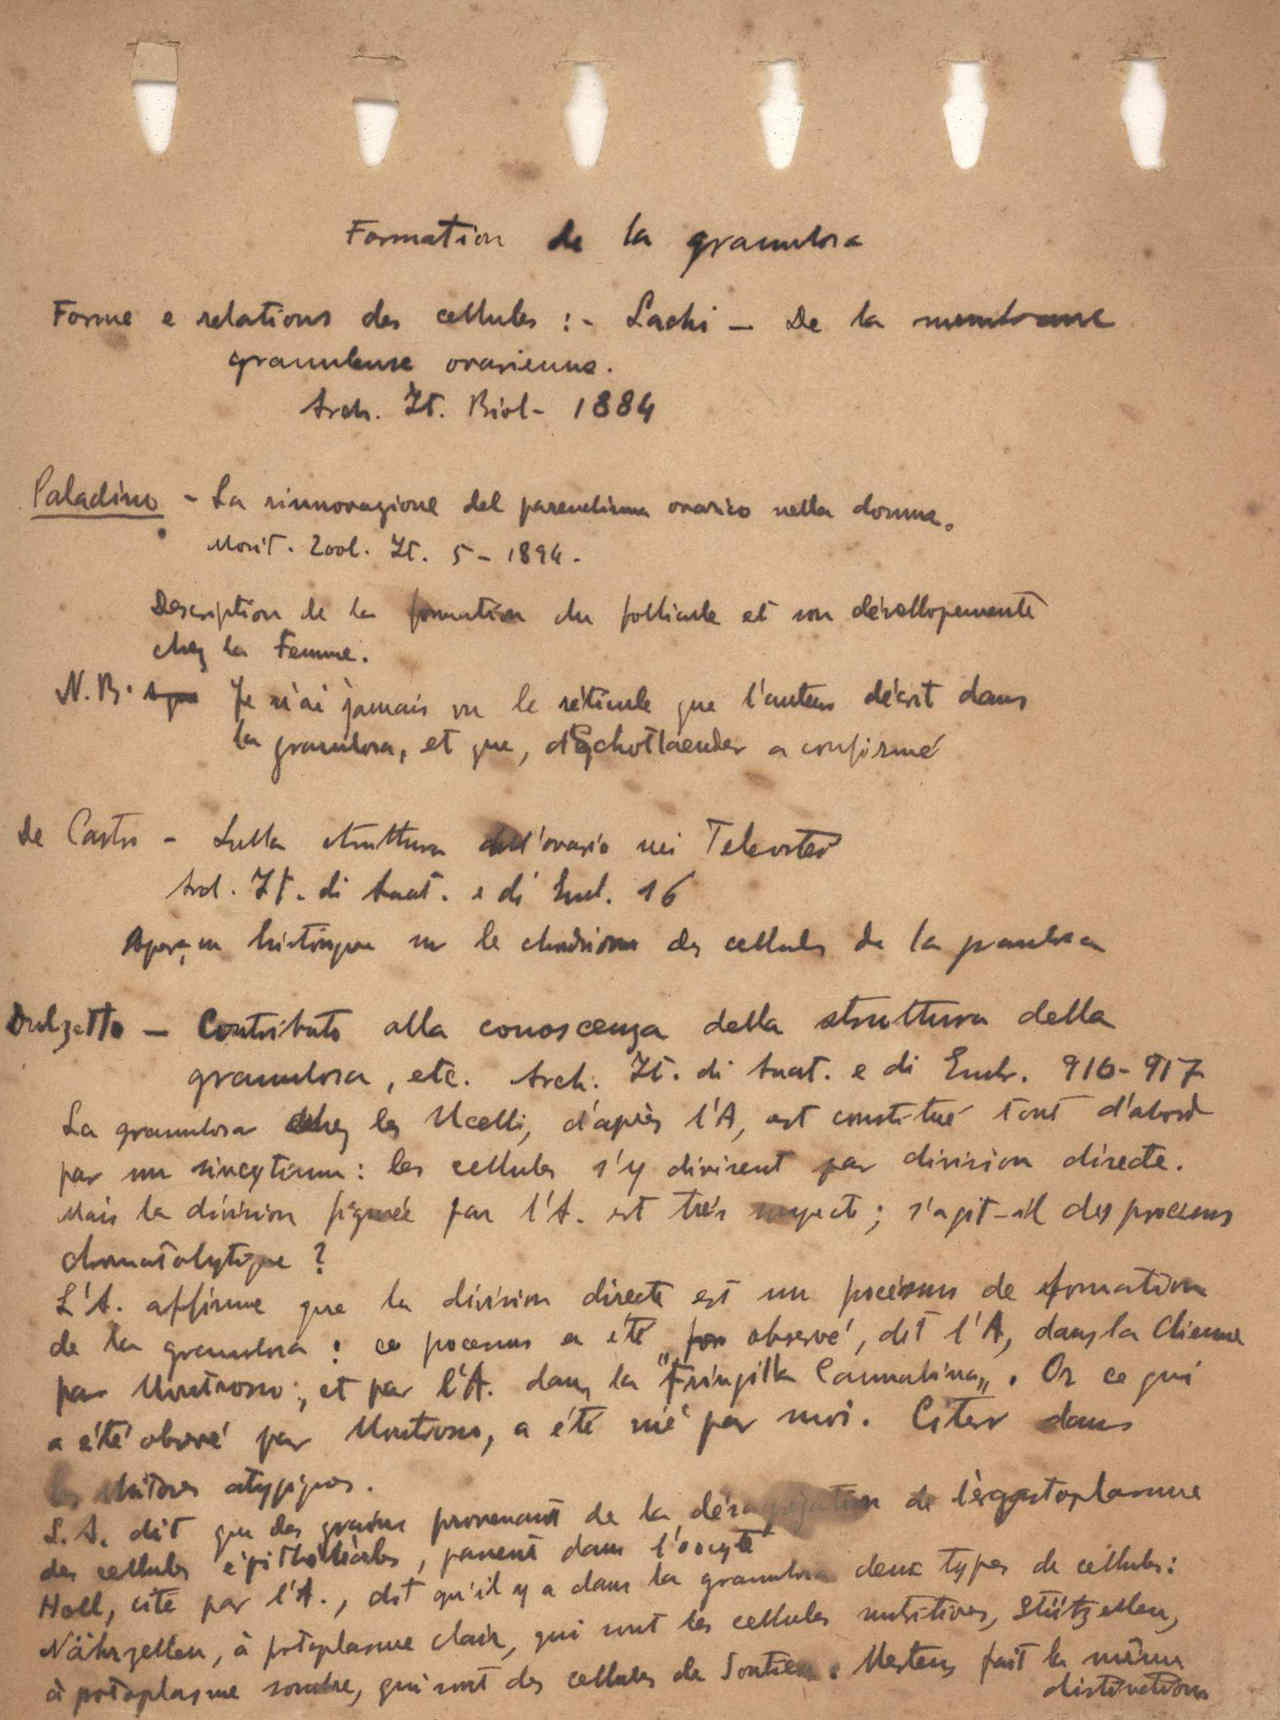 Formation de la granulosa
Forme e relations des cellules : - Lachi - De la membrane
granuleuse ovarienne.
Arch. It. Biol - 1884
Paladino - La rinnovazione del parenchima ovarico nella donna.
Monit. Zool. It. 5 - 1894.
Description de la formation du follicule et son dévellopemente
chez la Femme.
N.B. Je n'ai jamais vu le réticule que l'auteur décrit dans
la granulosa, et que, Schottlaender a confirmé
De Castro - Sulla struttura dell'ovario nei Teleostei
Arch. It. di Anat. e di Emb. 16
Aperçu historique sur le des cellules de la granulosa
Dulzetto - Contributo alla conoscenza della struttura della
granulosa, etc. Arch. It. di Anat. e di Embr. 916-917
La granulosa chez les Ucelli, d'après l'A, est constitué tout d'abord
par un sincytium : les cellules s'y divisent par division directe.
Mais la division figurée par l'A. est très suspecte ; s'agit-il des processus
chromatolytique ?
L'A. affirme que la division directe est un processus de formation
de la granulosa : ce pocessus a été observé, dit l'A, dans la Chienne
par Montroso, et par l'A. dans la "Fringilla Cannabina„. Or ce qui
a été obsrvé par Montroso, a été nié par moi. Citer dans
les Mitoses atypiques.
L.A. dit que des grains provenant de la désagrégation de l'ergastoplasme
des cellules épithéliales, passent dans l'oocyte
Holl, cité par l'A., dit qu'il y a dans la granulosa deux types de cellules :
Nährzellen, à potoplasme clair, qui sont les cellules nutritives, Stützellen,
à potoplasme sombre, qui sont des cellules de Soutien. Mertens fait la même
distinctions